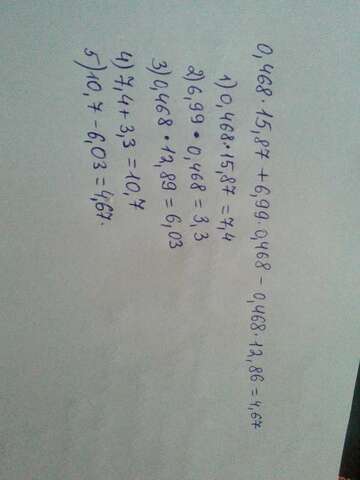 0,468·15,87+6,99·0,468-0,468·12,86=4,67
1) 0,468·15,87=7,4
2) 6,99·0,468=3,3
3) 0,468·12,89=6,03
4) 7,4+3,3=10,7
5) 10,7-6,03=4,67.